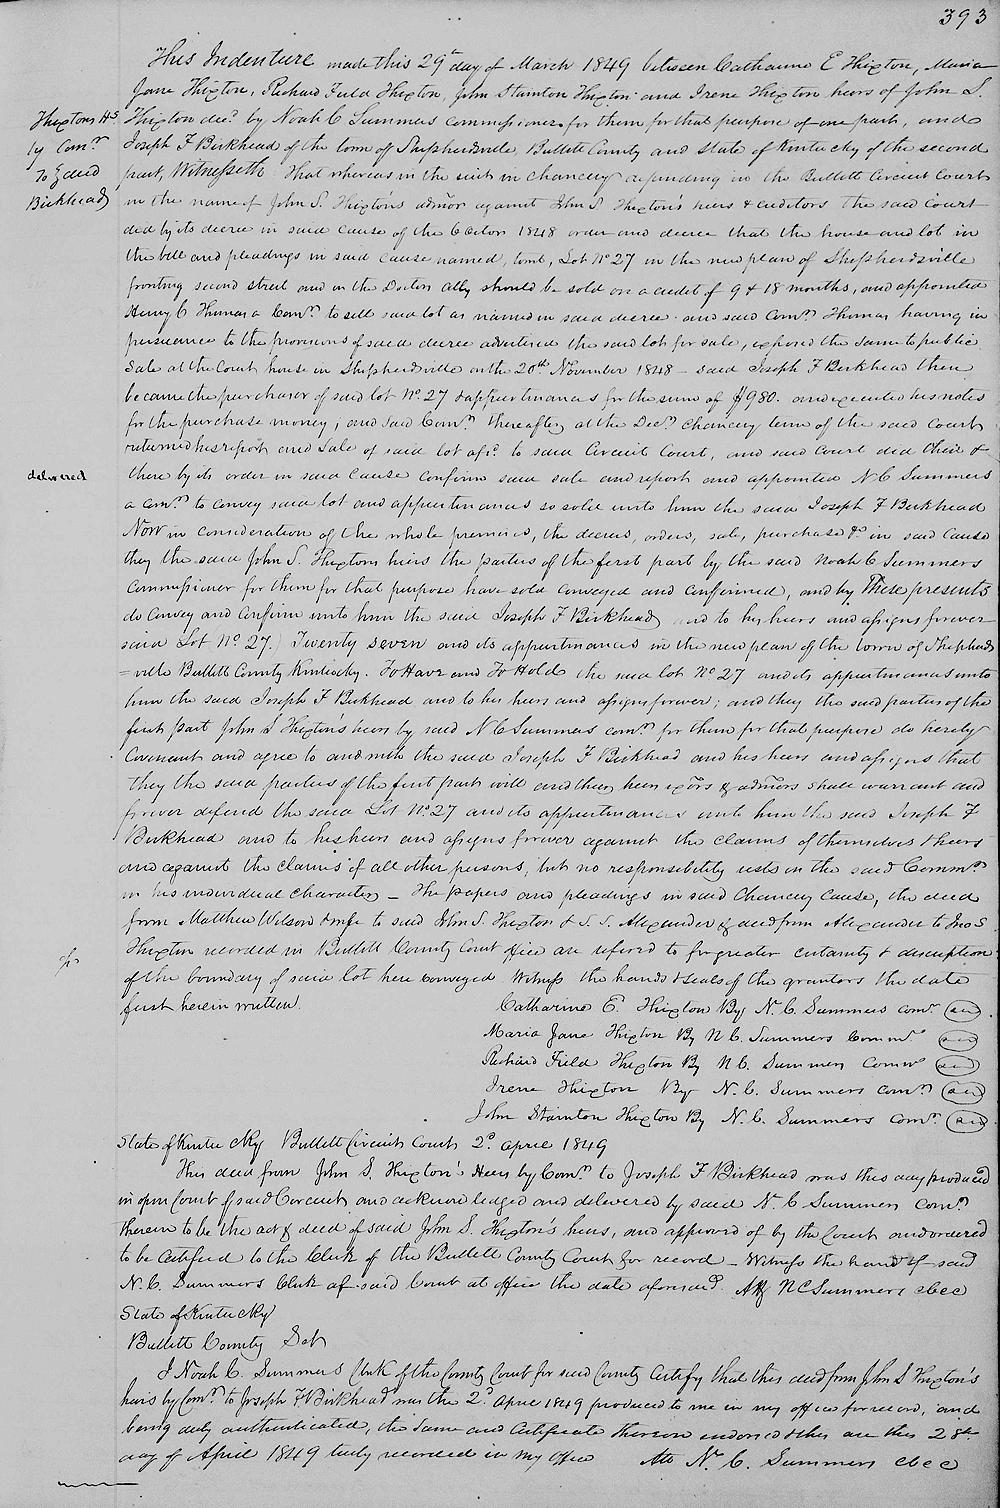 393
This Indenture made this 29th day of March 1849 between Catharine E Thixton, Maria
Jane Thixton, Richard Field Thixton, John Stainton Thixton and Irene Thixton heirs of John S.
Thixtons Hs
by Comr
To } deed
Birkhead
Thixton decd by Noah C Summers commissioner for them for that purpose of one part, and
Joseph F Birkhead of the town of Shepherdsville, Bullitt County and State of Kentucky of the second
part, Witnesseth That whereas in the suit in chancery depending in the Bullitt Circuit Court
in the name of John S. Thixton's admor against John S Thixton's heirs & creditors the said court
did by its decree in said cause of the 6 Octor 1848 order and decree that the house and lot in
the bill and pleadings in said cause named, towit, Lot No 27 in the new plan of Shepherdsville
fronting second street and on the Doctors ally should be sold on a credit of 9 & 18 months, and appointed
Henry C Thomas a Comr to sell said lot as named in said decree and said Comr Thomas having in
pursuance to the provisions of said decree advertised the said lot for sale, exposed the same to public
sale at the Court house in Shepherdsville on the 20th November 1848 - said Joseph F Birkhead then
became the purchaser of said lot No 27 & appurtenances for the sum of $980. and executed his notes
for the purchase money, and said Comr thereafter at the Decr Chancery term of the said Court
returned his report and sale of said lot afsd to said Circuit Court, and said court did then &
delivered
there by its order in said cause confirm said sale and report and appointed N C Summers
a comr to convey said lot and appurtenances so sold unto him the said Joseph F Birkhead
Now in consideration of the whole premises, the decrees, orders, sale, purchase &c in said cause
they the said John S. Thixtons heirs the parties of the first part by the said Noah C Summers
Commissioner for them for that purpose have sold conveyed and confirmed, and by These presents
do convey and confirm unto him the said Joseph F Birkhead and to his heirs and assigns forever
said Lot No 27.) Twenty seven and its appurtenances in the new plan of the town of Shepherds
=ville Bullitt County Kentucky. To Have and To Hold the said lot No 27 and its appurtenances unto
him the said Joseph F Birkhead and to his heirs and assigns forever; and they the said parties of the
first part John S Thixton's heirs by said N C Summers comr for them for that purpose do hereby
Covenant and agree to and with the said Joseph F Birkhead and his heirs and assigns that
they the said parties of the first part will and their heirs exors & admors shall warrant and
forever defend the said Lot No 27 and its appurtenances unto him the said Joseph F
Birkhead and to his heirs and assigns forever against the claims of themselves & heirs
and against the claims of all other persons, but no responsibility rests on the said Commr
in his individual character - The papers and pleadings in said Chancery Cause, the deed
from Matthew Wilson & wife to said John S. Thixton & S. S. Alexander & deed from Alexander to Jno S
Thixton recorded in Bullitt County Court office are refered to for greater certainty & discription
of the boundary of said lot here conveyed Witness the hands & seals of the grantors the date
first herein written.
Catharine E. Thixton By N. C. Summers comr (seal)
Maria Jane Thixton By N C. Summers Commr (seal)
Richard Field Thixton By N C. Summers Commr (seal)
Irene Thixton By N. C. Summers comr (seal)
John Stainton Thixton By N. C. Summers comr (seal)
State of Kentucky Bullitt Circuit Court 2d April 1849
This deed from John S. Thixton's Heirs by Comr to Joseph F Birkhead was this day produced
in open Court of said Circuit and acknowledged and delivered by said N. C Summers comr
therein to be the act & deed of said John S. Thixton's heirs, and approved of by the Court and ordered
to be certified to the Clerk of the Bullitt County Court for record - Witness the hand of said
N. C. Summers Clerk of said Court at office the date aforesaid. Att N C Summers cbcc
State of Kentucky
Bullitt County Sct
I Noah C. Summers Clerk of the County Court for said County Certify that this deed from John S Thixton's
heirs by Comr to Joseph F Birkhead was the 2d April 1849 produced to me in my office for record, and
being duly authenticated, the same and certificate thereon endorsed & this are this 28th
day of April 1849 truly recorded in my office Att N. C. Summers cbcc